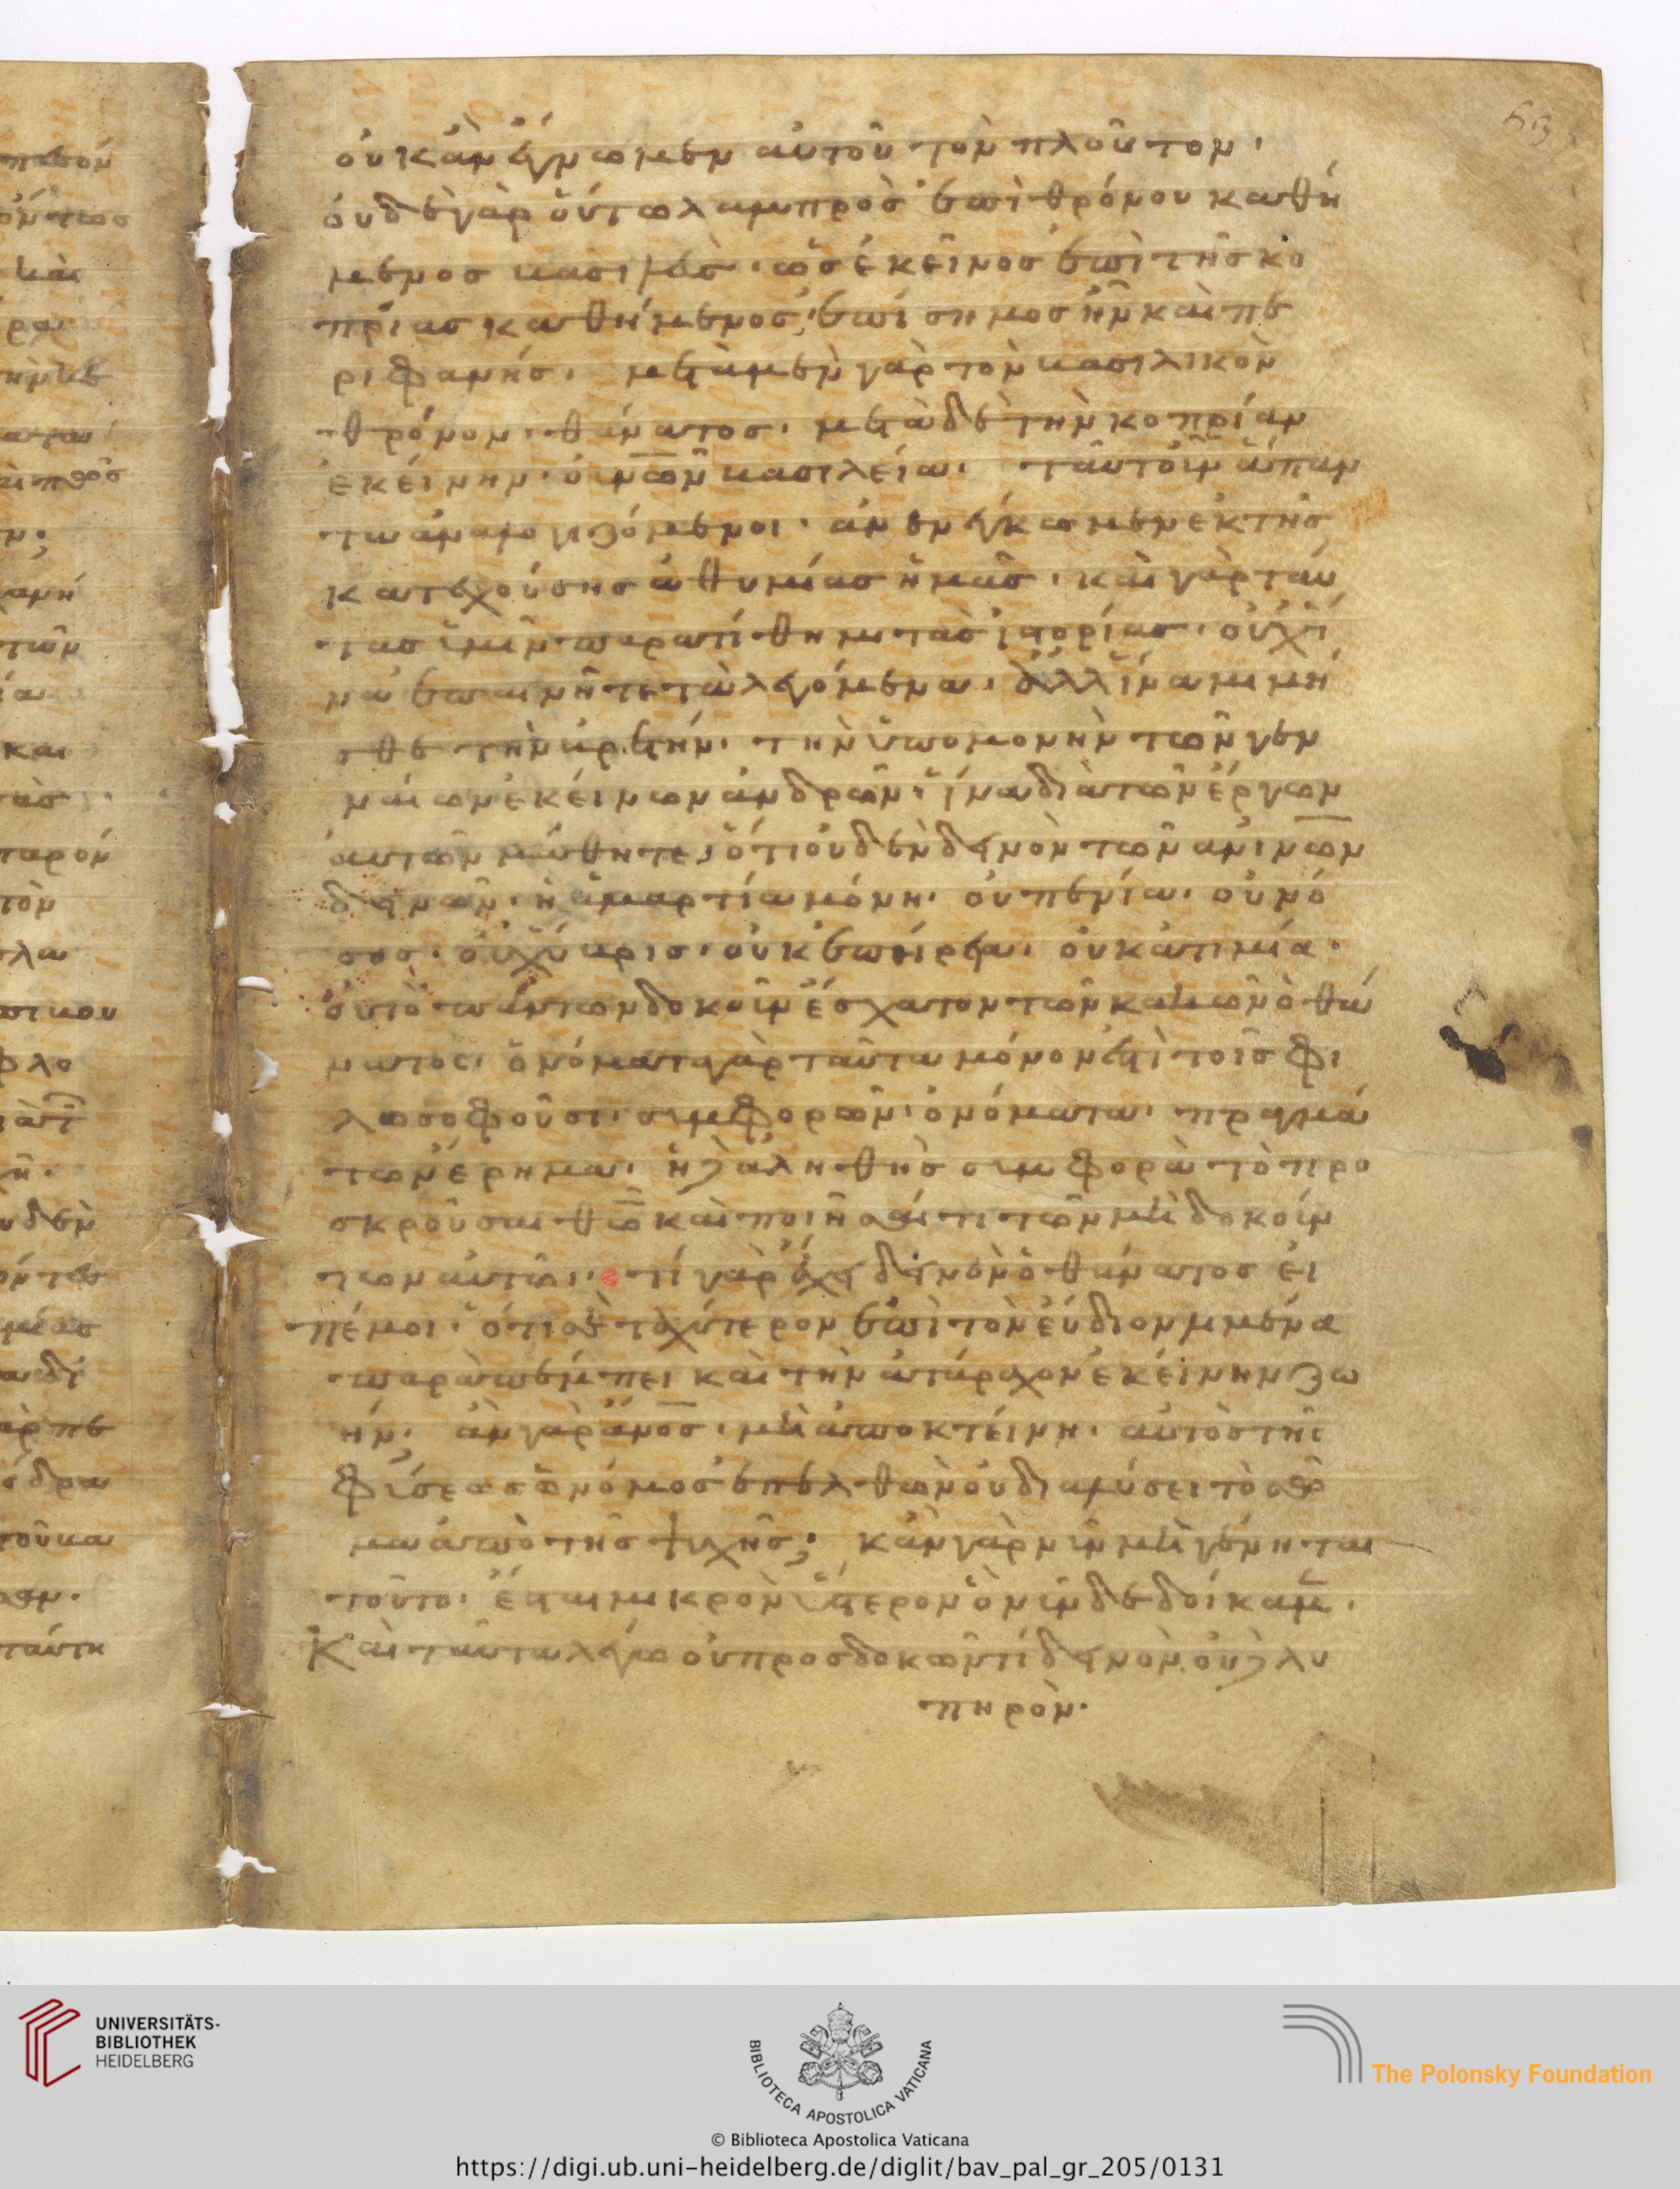 οὐκἂν ἔγνωμεν αὐτοῦ τὸν πλοῦτον·
ὀυδὲ γὰρ ὅυτω λαμπρὸς ἐπὶ θρόνου καθή
μενος βασιλεὺς· ὡς ἐκεῖνος ἐπὶ τῆς κο
πρίας καθήμενος, ἐπίσημος ἦν καὶ πε
ριφανής. μετὰ μὲν γὰρ τὸν βασιλικὸν
θρόνον· θάνατος. μετὰ δὲ τὴν κοπρίαν
ἐκείνην· οὐνῶν βασιλεία. ταῦτ' οὖν ἅπαν
τα ἀναλογιζόμενοι· ἀνενέγκωμεν ἐκ τῆς
κατεχούσης ἀθυμίας ἡμᾶς. καὶ γὰρ ταύ
τας ὑμῖν παρατίθημι τὰς ἱστορίας· οὐχ ἵ
να ἐπαινῆτε τὰ λεγόμενα· ἀλλ' ἵνα μιμή
σθε τὴν ἀρετήν· τὴν ὑπομονὴν τῶν γεν
ναίων ἐκείνων ἀνδρῶν· ἵνα διὰ τῶν ἔργων
αὐτῶν μάθητε, ὅτι οὐδὲν δεινὸν τῶν ἀνίνων
δεινῶν· ἡ ἁμαρτία μόνη· οὐ πενία· οὐ νό
σος· οὐχ ὕβρις· οὐκ ἐπήρεια· οὐκ ἀτιμία·
οὐ τὸ πάντων δοκοῦν ἔσχατον τῶν κακῶν ὁ θά
νατος· ὀνόματα γὰρ ταῦτα μόνον ἐστὶ τοῖς φι
λοσοφοῦσι· συμφορῶν ὀνόματα· πραγμά
των ἔρημα. ἡ δ' ἀληθὴς συμφορὰ τὸ προ
σκροῦσαι θῶ καὶ ποιῆσαί τι τῶν μὴ δοκούν
των αὐτῶ· τί γὰρ ἔχει δεινὸν ὁ θάνατος εἰ
πέ μοι· ὅτι σε ταχύτερον ἐπὶ τὸν εὔδιον λιμένα
παραπέμπει καὶ τὴν ἀτάραχον ἐκείνην ζω
ήν; ἂν γὰρ ἄνος μὴ ἀποκτείνη· αὐτὸς τῆς
φύσεως ὁ νόμος ἐπελθὼν οὐ διαλύσει τὸ σῶ
μα ἀπὸ τῆς ψυχῆς; κἂν γὰρ νῦν μὴ γένηται
τοῦτο· ἔσται μικρὸν ὕστερον ὃ νῦν δεδοίκαμεν.
Καὶ ταῦτα λέγω οὐ προσδοκῶν τί δεινὸν οὐδὲ λυ
πηρὸν.